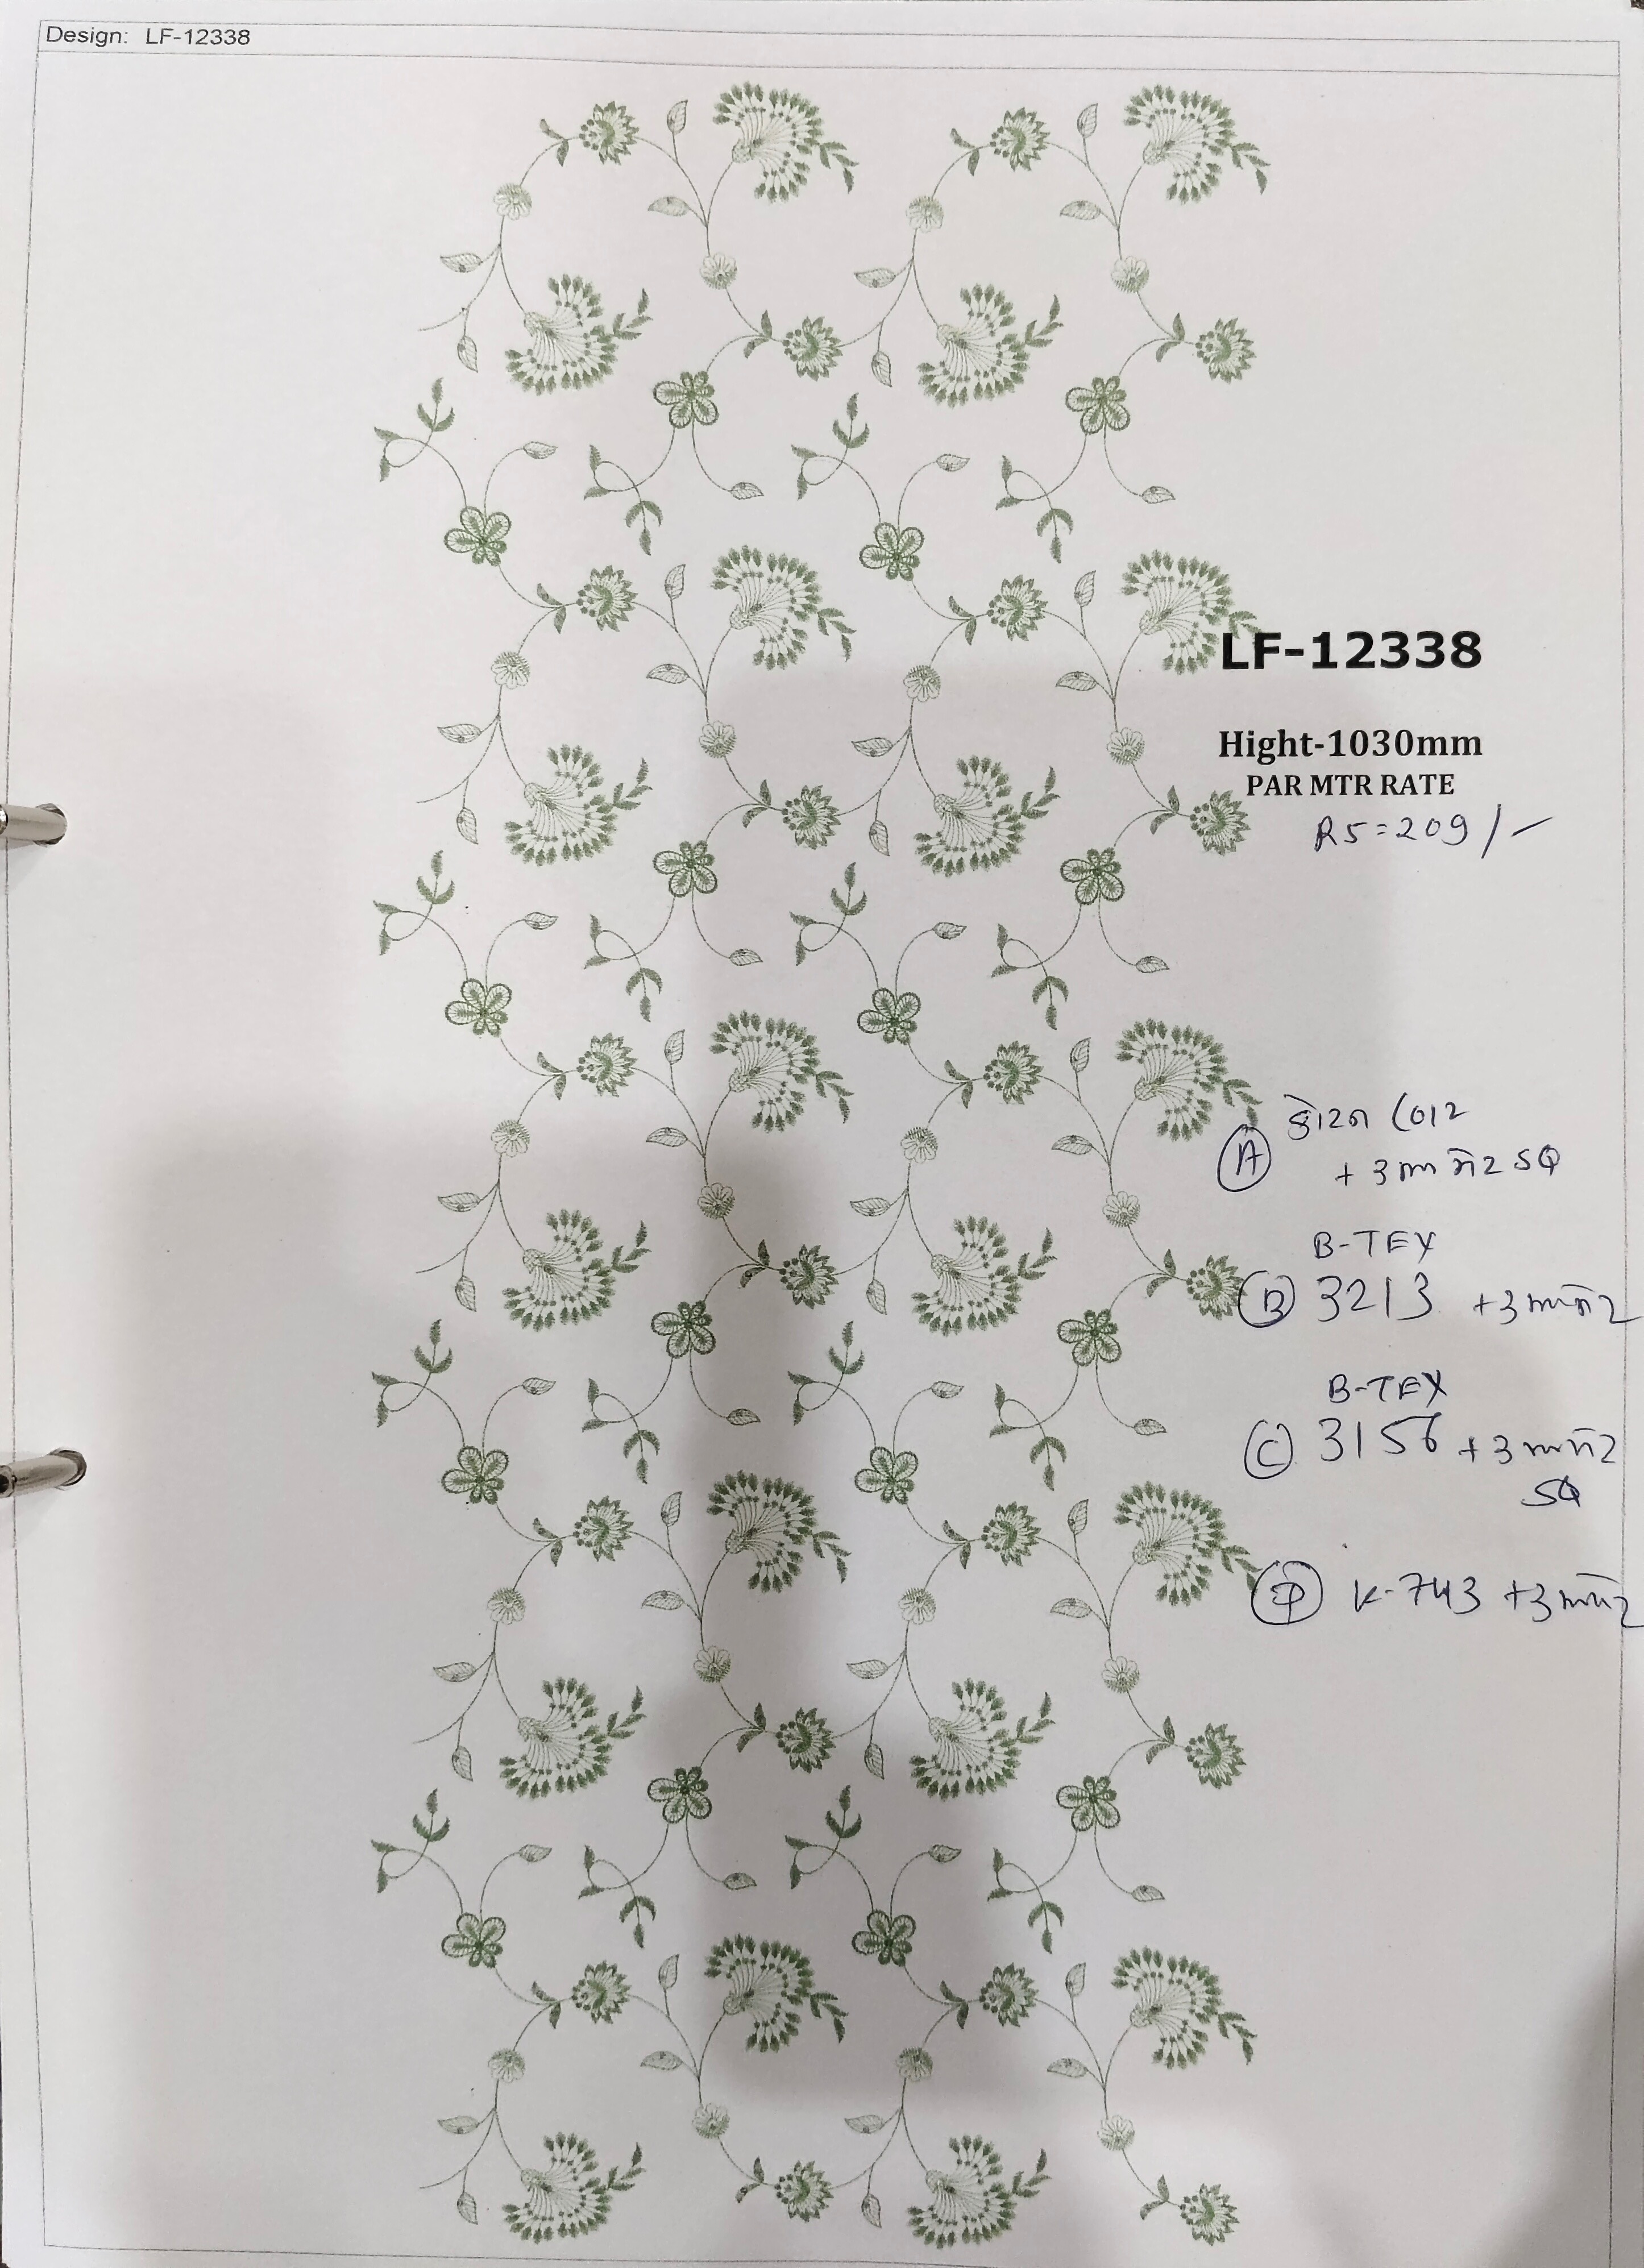 Design: LF-12338
LF-12338
Hight-1030mm
PAR MTR RATE
RS=209/-
A
+ 3mm SQ
B-TEX
B 3213 +3mm
B-TEX
C 3156 +3mm
SQ
D K-743 +3mm